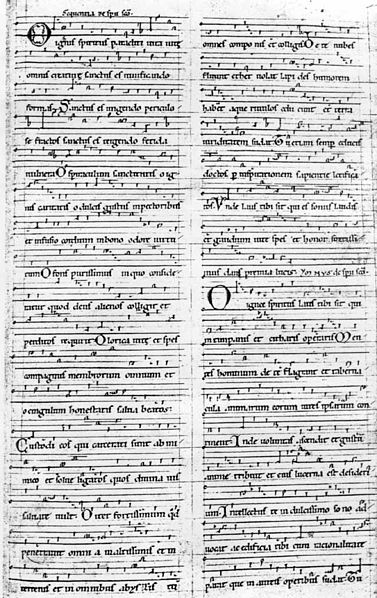 Sequentia de spu sco.
O ignis spiritus paracliti uita uite
omnis creature sanctus es uiuificando
formas. Sanctus es ungendo periculo
se fractos sanctus es tergendo fetida
uulnera. O spiraculum sanctitatis o ig
nis caritatis o dulcis gustus in pectoribus
et infusio cordium in bono odore uirtu
tum. O fons purissimus in quo conside
ratur quod deus alienos colligit et
perditos requirit. O lorica uite et spes
compaginis membrorum omnium et
o cingulum honestatis salua beatos.
Custodi eos qui carcerati sunt ab ini
mico et solue ligatos quos diuina uis
saluare uult. O iter fortissimum qd
penetrauit omnia in altissimis et in
terrenis et in omnibus abyssis tu
omnes componis et colligis. De te nubes
fluunt ether uolat lapides humorem
habent aque riuulos educunt et terra
uiriditatem sudat. Tu etiam semper educis
doctos p inspirationem sapientie letifica
tos. Vnde laus tibi sit qui es sonus laudis
et gaudium uite spes et honor fortissi
mus dans premia lucis. YMNUS de spu sco.
O ignee spiritus laus tibi sit qui
in timpanis et citharis operaris. Men
tes hominum de te flagrant et taberna
cula animarum eorum uires ipsarum con
tinent. Inde uoluntas ascendit et gustum
anime tribuit et eius lucerna est desideri
um. Intellectus te in dulcissimo sono ad
uocat ac edificia tibi cum racionalitate
parat que in aureis operibus sudat. Tu